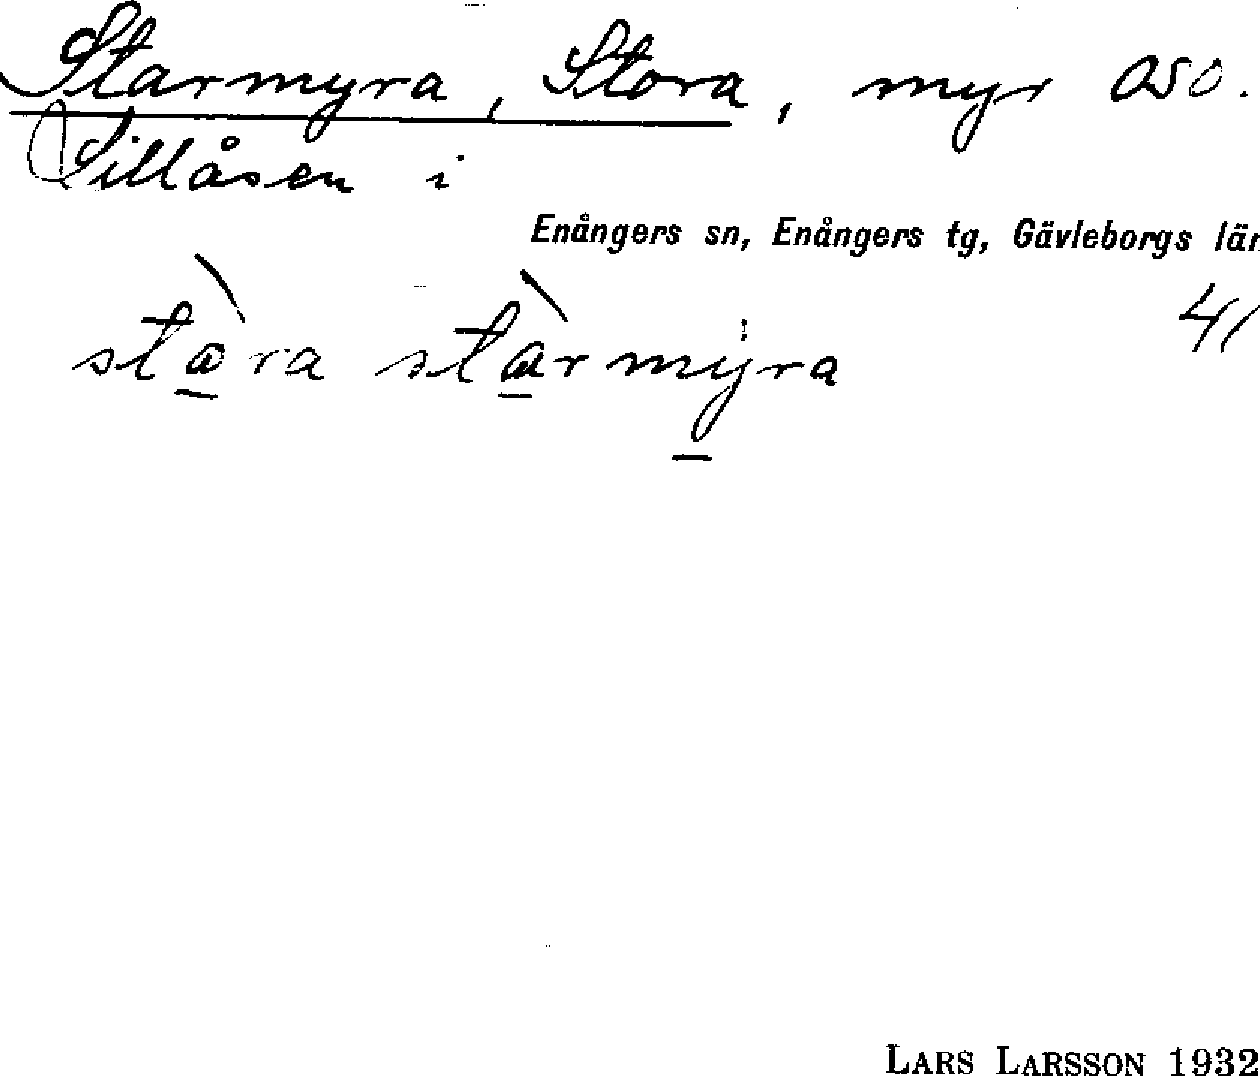 Starmyra, Stora, myr OSO.
Sillåsen i
Enångers sn, Enångers tg, Gävleborgs län
41
stàra stàrmyra
LARS LARSSON 1932